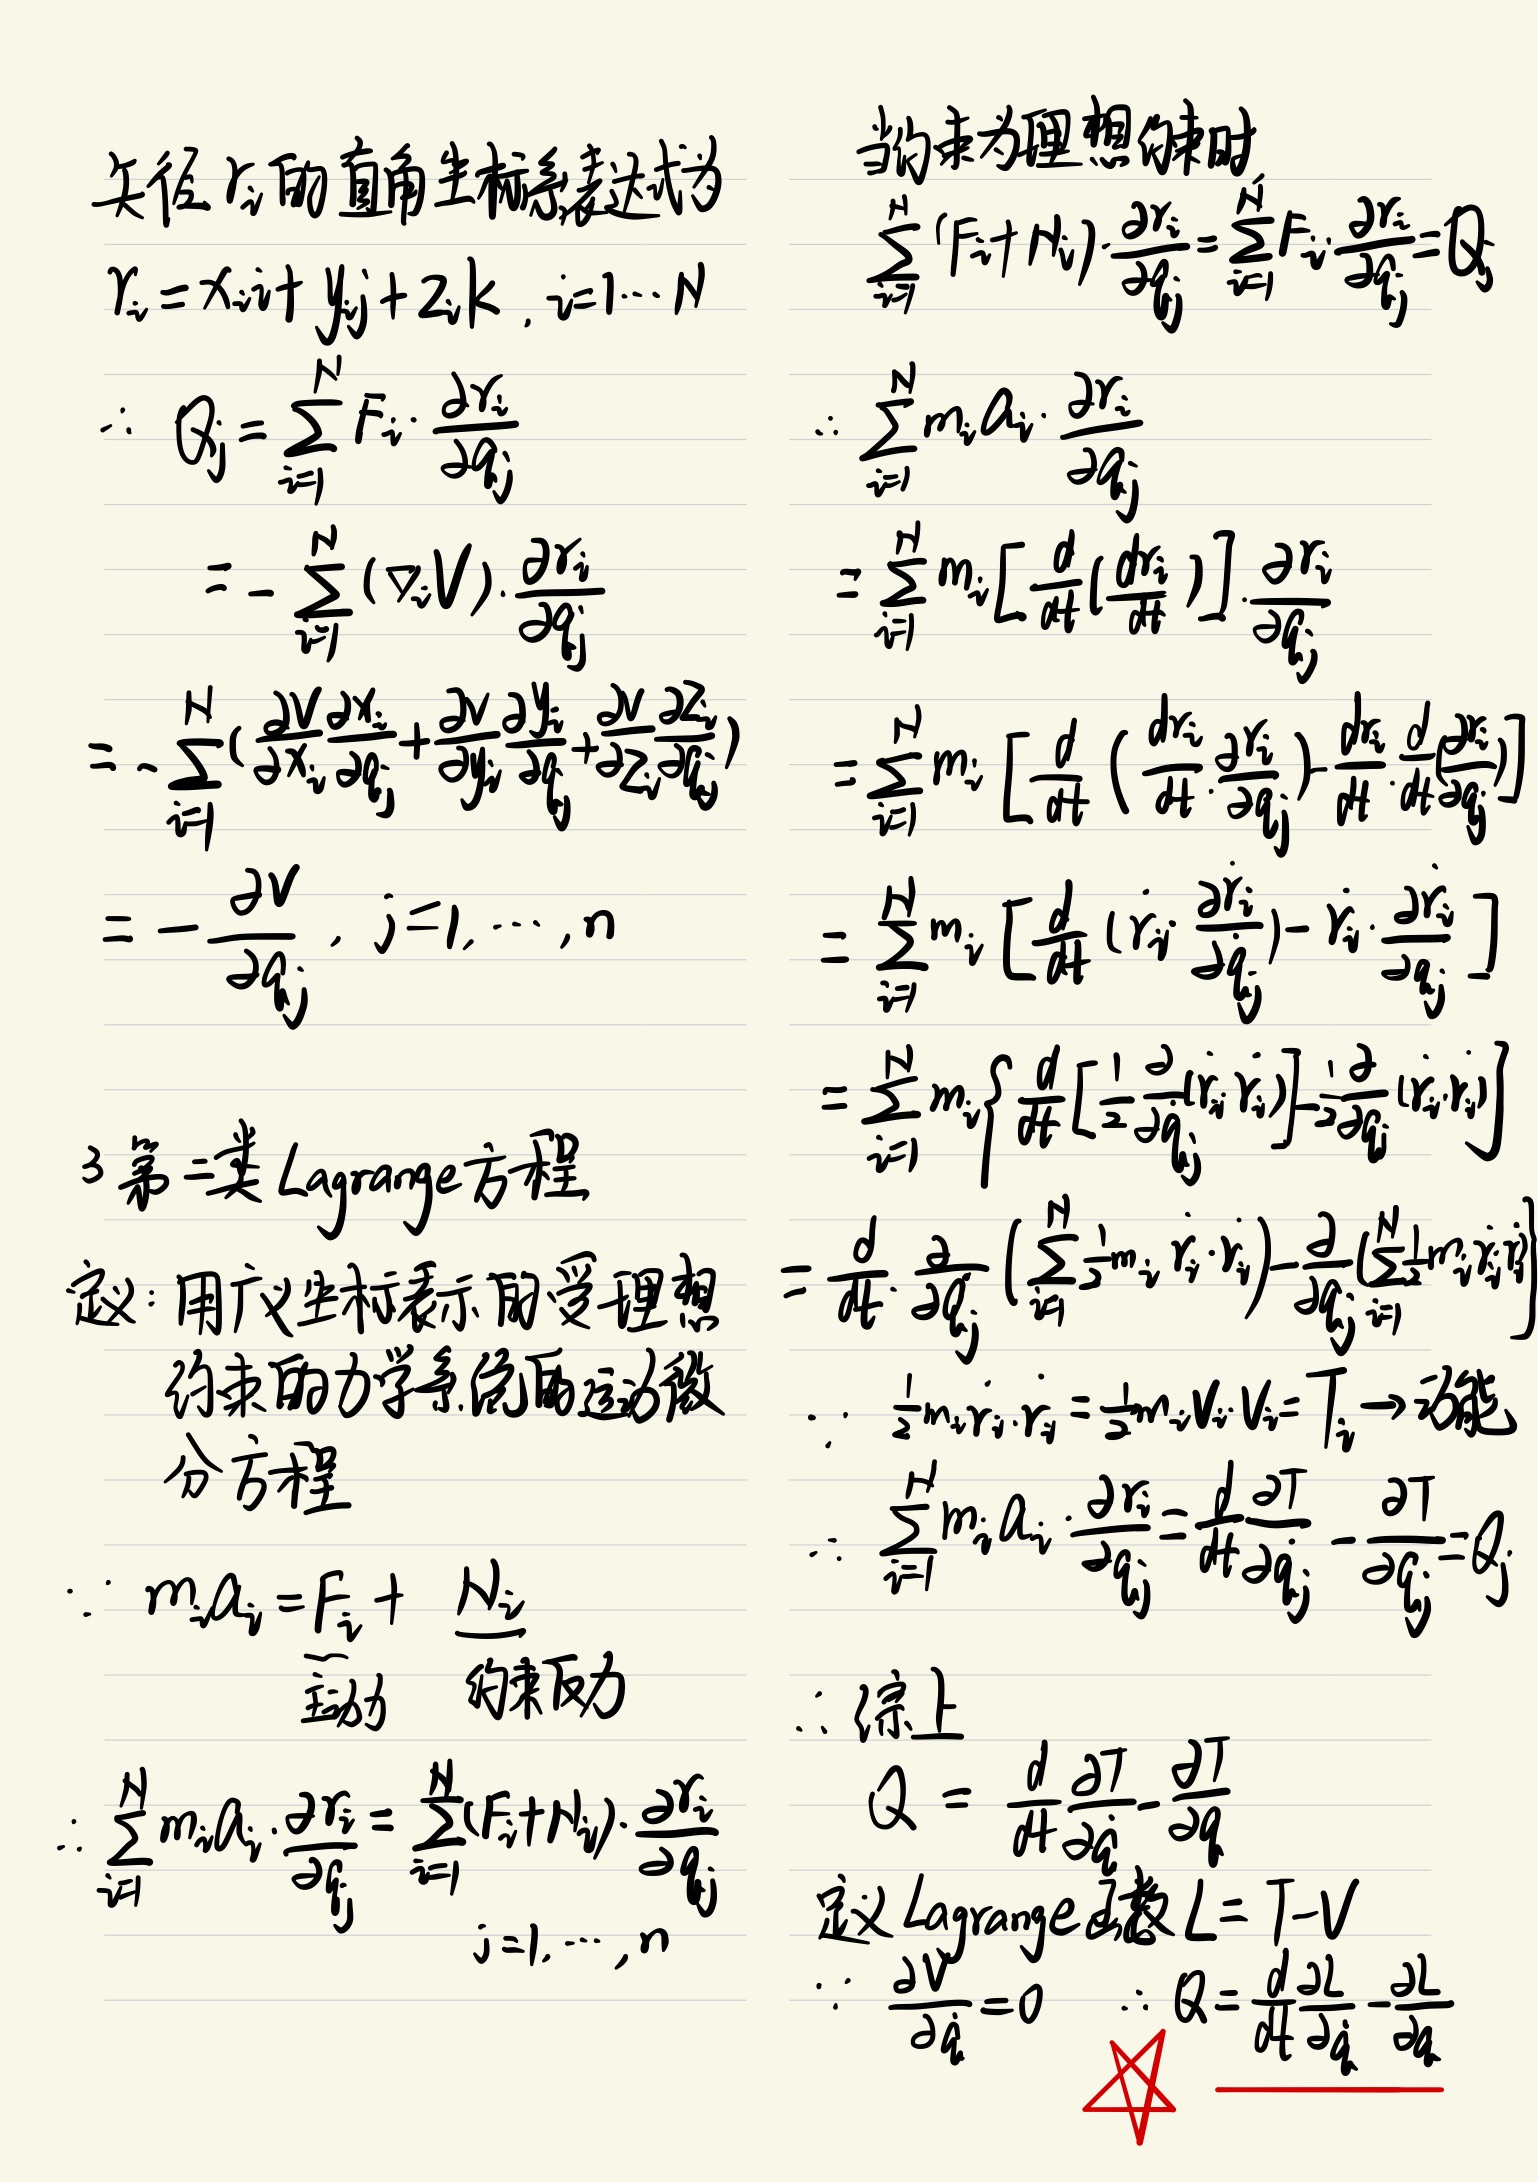 矢径 rᵢ 的直角坐标系表达式为
rᵢ = xᵢi + yᵢj + zᵢk , i=1⋯N
∴ Qⱼ = ∑_{i=1}^{N} Fᵢ · ∂rᵢ/∂qⱼ
= - ∑_{i=1}^{N} (∇ᵢV) · ∂rᵢ/∂qⱼ
= - ∑_{i=1}^{N} (∂V/∂xᵢ ∂xᵢ/∂qⱼ + ∂V/∂yᵢ ∂yᵢ/∂qⱼ + ∂V/∂zᵢ ∂zᵢ/∂qⱼ)
= - ∂V/∂qⱼ , j=1, ⋯, n
3 第二类 Lagrange 方程
定义: 用广义坐标表示的受理想
约束的力学系统的运动微
分方程
∵ mᵢaᵢ = Fᵢ + Nᵢ
主动 约束反力
∴ ∑_{i=1}^{N} mᵢaᵢ · ∂rᵢ/∂qⱼ = ∑_{i=1}^{N} (Fᵢ+Nᵢ) · ∂rᵢ/∂qⱼ
j=1, ⋯, n
当约束为理想约束时
∑_{i=1}^{N} (Fᵢ+Nᵢ) · ∂rᵢ/∂qⱼ = ∑_{i=1}^{N} Fᵢ · ∂rᵢ/∂qⱼ = Qⱼ
∴ ∑_{i=1}^{N} mᵢaᵢ · ∂rᵢ/∂qⱼ
= ∑_{i=1}^{N} mᵢ [d/dt (drᵢ/dt)] · ∂rᵢ/∂qⱼ
= ∑_{i=1}^{N} mᵢ [d/dt (drᵢ/dt · ∂rᵢ/∂qⱼ) - drᵢ/dt · d/dt (∂rᵢ/∂qⱼ)]
= ∑_{i=1}^{N} mᵢ [d/dt (ṙᵢ · ∂ṙᵢ/∂q̇ⱼ) - ṙᵢ · ∂ṙᵢ/∂qⱼ]
= ∑_{i=1}^{N} mᵢ {d/dt [1/2 ∂/∂q̇ⱼ (ṙᵢ · ṙᵢ)] - 1/2 ∂/∂qⱼ (ṙᵢ · ṙᵢ)}
= d/dt · ∂/∂q̇ⱼ (∑_{i=1}^{N} 1/2 mᵢ ṙᵢ · ṙᵢ) - ∂/∂qⱼ (∑_{i=1}^{N} 1/2 mᵢ ṙᵢ ṙᵢ)}
∵ 1/2 mᵢ ṙᵢ · ṙᵢ = 1/2 mᵢ Vᵢ · Vᵢ = Tᵢ → 动能
∴ ∑_{i=1}^{N} mᵢaᵢ · ∂rᵢ/∂qⱼ = d/dt ∂T/∂q̇ⱼ - ∂T/∂qⱼ = Qⱼ
∴ 综上
Q = d/dt ∂T/∂q̇ - ∂T/∂q
定义 Lagrange 函数 L = T-V
∵ ∂V/∂q̇ = 0 ∴ Q = d/dt ∂L/∂q̇ - ∂L/∂q